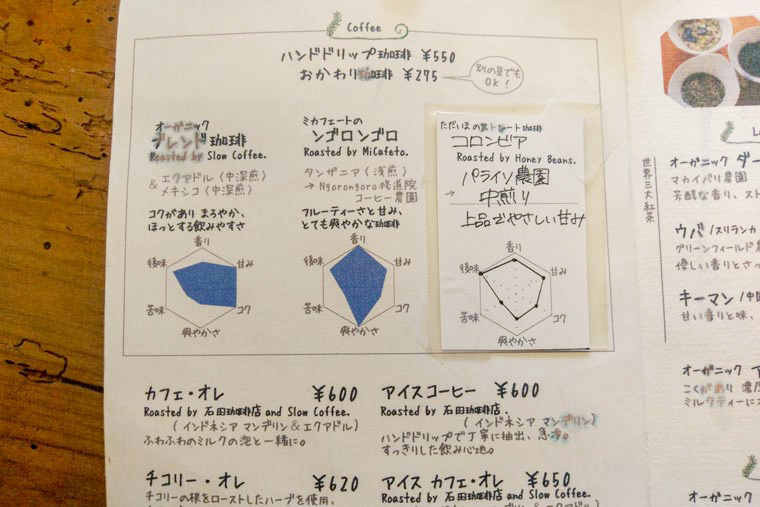 Coffee
ハンドドリップ珈琲 ¥550
おかわり珈琲 ¥275
別の豆でも
OK!
オーガニック
ブレンド珈琲
Roasted by Slow Coffee.
& エクアドル (中深煎)
メキシコ (中深煎)
コクがあり まろやか、
ほっとする飲みやすさ
香り
甘み
コク
爽やかさ
苦味
後味
ミカフェートの
ンゴロンゴロ
Roasted by MiCafeto.
タンザニア (浅煎)
→ Ngorongoro修道院
コーヒー農園
フルーティーさと甘み、
とても爽やかな珈琲
香り
甘み
コク
爽やかさ
苦味
後味
ただいまのストレート珈琲
コロンビア
Roasted by Honey Beans.
パライソ農園
→ 中煎り
上品でやさしい甘み
香り
甘み
コク
爽やかさ
苦味
後味
カフェ・オレ ¥600
Roasted by 石田珈琲店 and Slow Coffee.
(インドネシア マンデリン&エクアドル)
ふわふわのミルクの泡と一緒に。
アイスコーヒー ¥600
Roasted by 石田珈琲店.
(インドネシア マンデリン)
ハンドドリップで丁寧に抽出、急冷。
すっきりした飲み心地。
チコリー・オレ ¥620
チコリーの根をローストしたハーブを使用、
アイス カフェ・オレ ¥650
Roasted by 石田珈琲店 and Slow Coffee.
世界三大紅茶
オーガニック ダー
マカイバリ農園
芳醇な香り、スト
ウバ /スリランカ
グリーンフィールド
優しい香りとさっ
キーマン /中
甘い香りと味、
オーガニック
こくがあり 濃
ミルクティーに
オーガニック